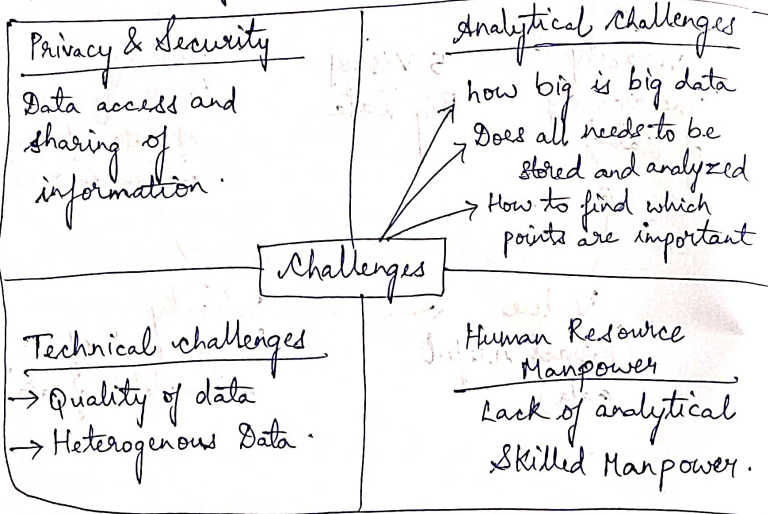 Privacy & Security
Data access and
sharing of
information.
Analytical challenges
how big is big data
Does all needs to be
stored and analyzed
How to find which
points are important
Challenges
Technical challenges
→ Quality of data
→ Heterogenous Data.
Human Resource
Manpower
Lack of analytical
Skilled Manpower.